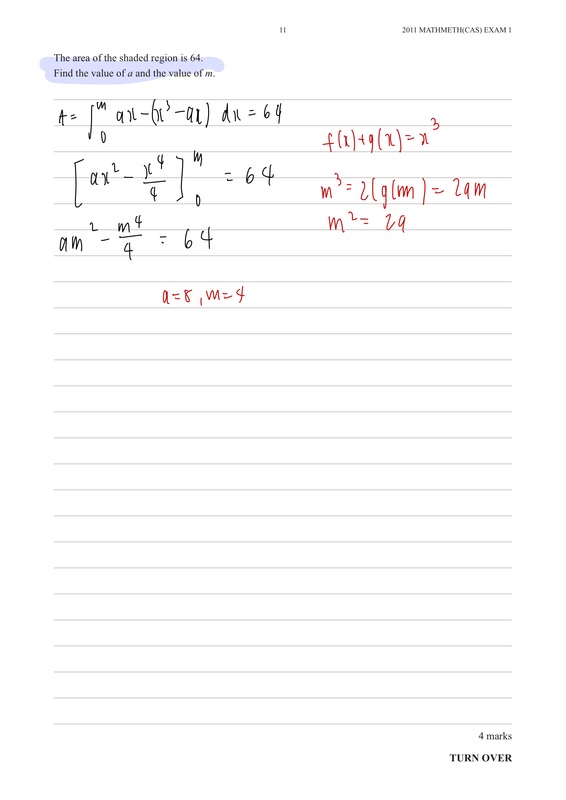 11
2011 MATHMETH(CAS) EXAM 1
The area of the shaded region is 64.
Find the value of a and the value of m.
A = ∫₀ᵐ ax − (x³ − ax) dx = 64
f(x) + g(x) = x³
[ax² − x⁴/4]₀ᵐ = 64
m³ = 2(g(m) = 2am
m² = 2a
am² − m⁴/4 = 64
a = 8, m = 4
4 marks
TURN OVER